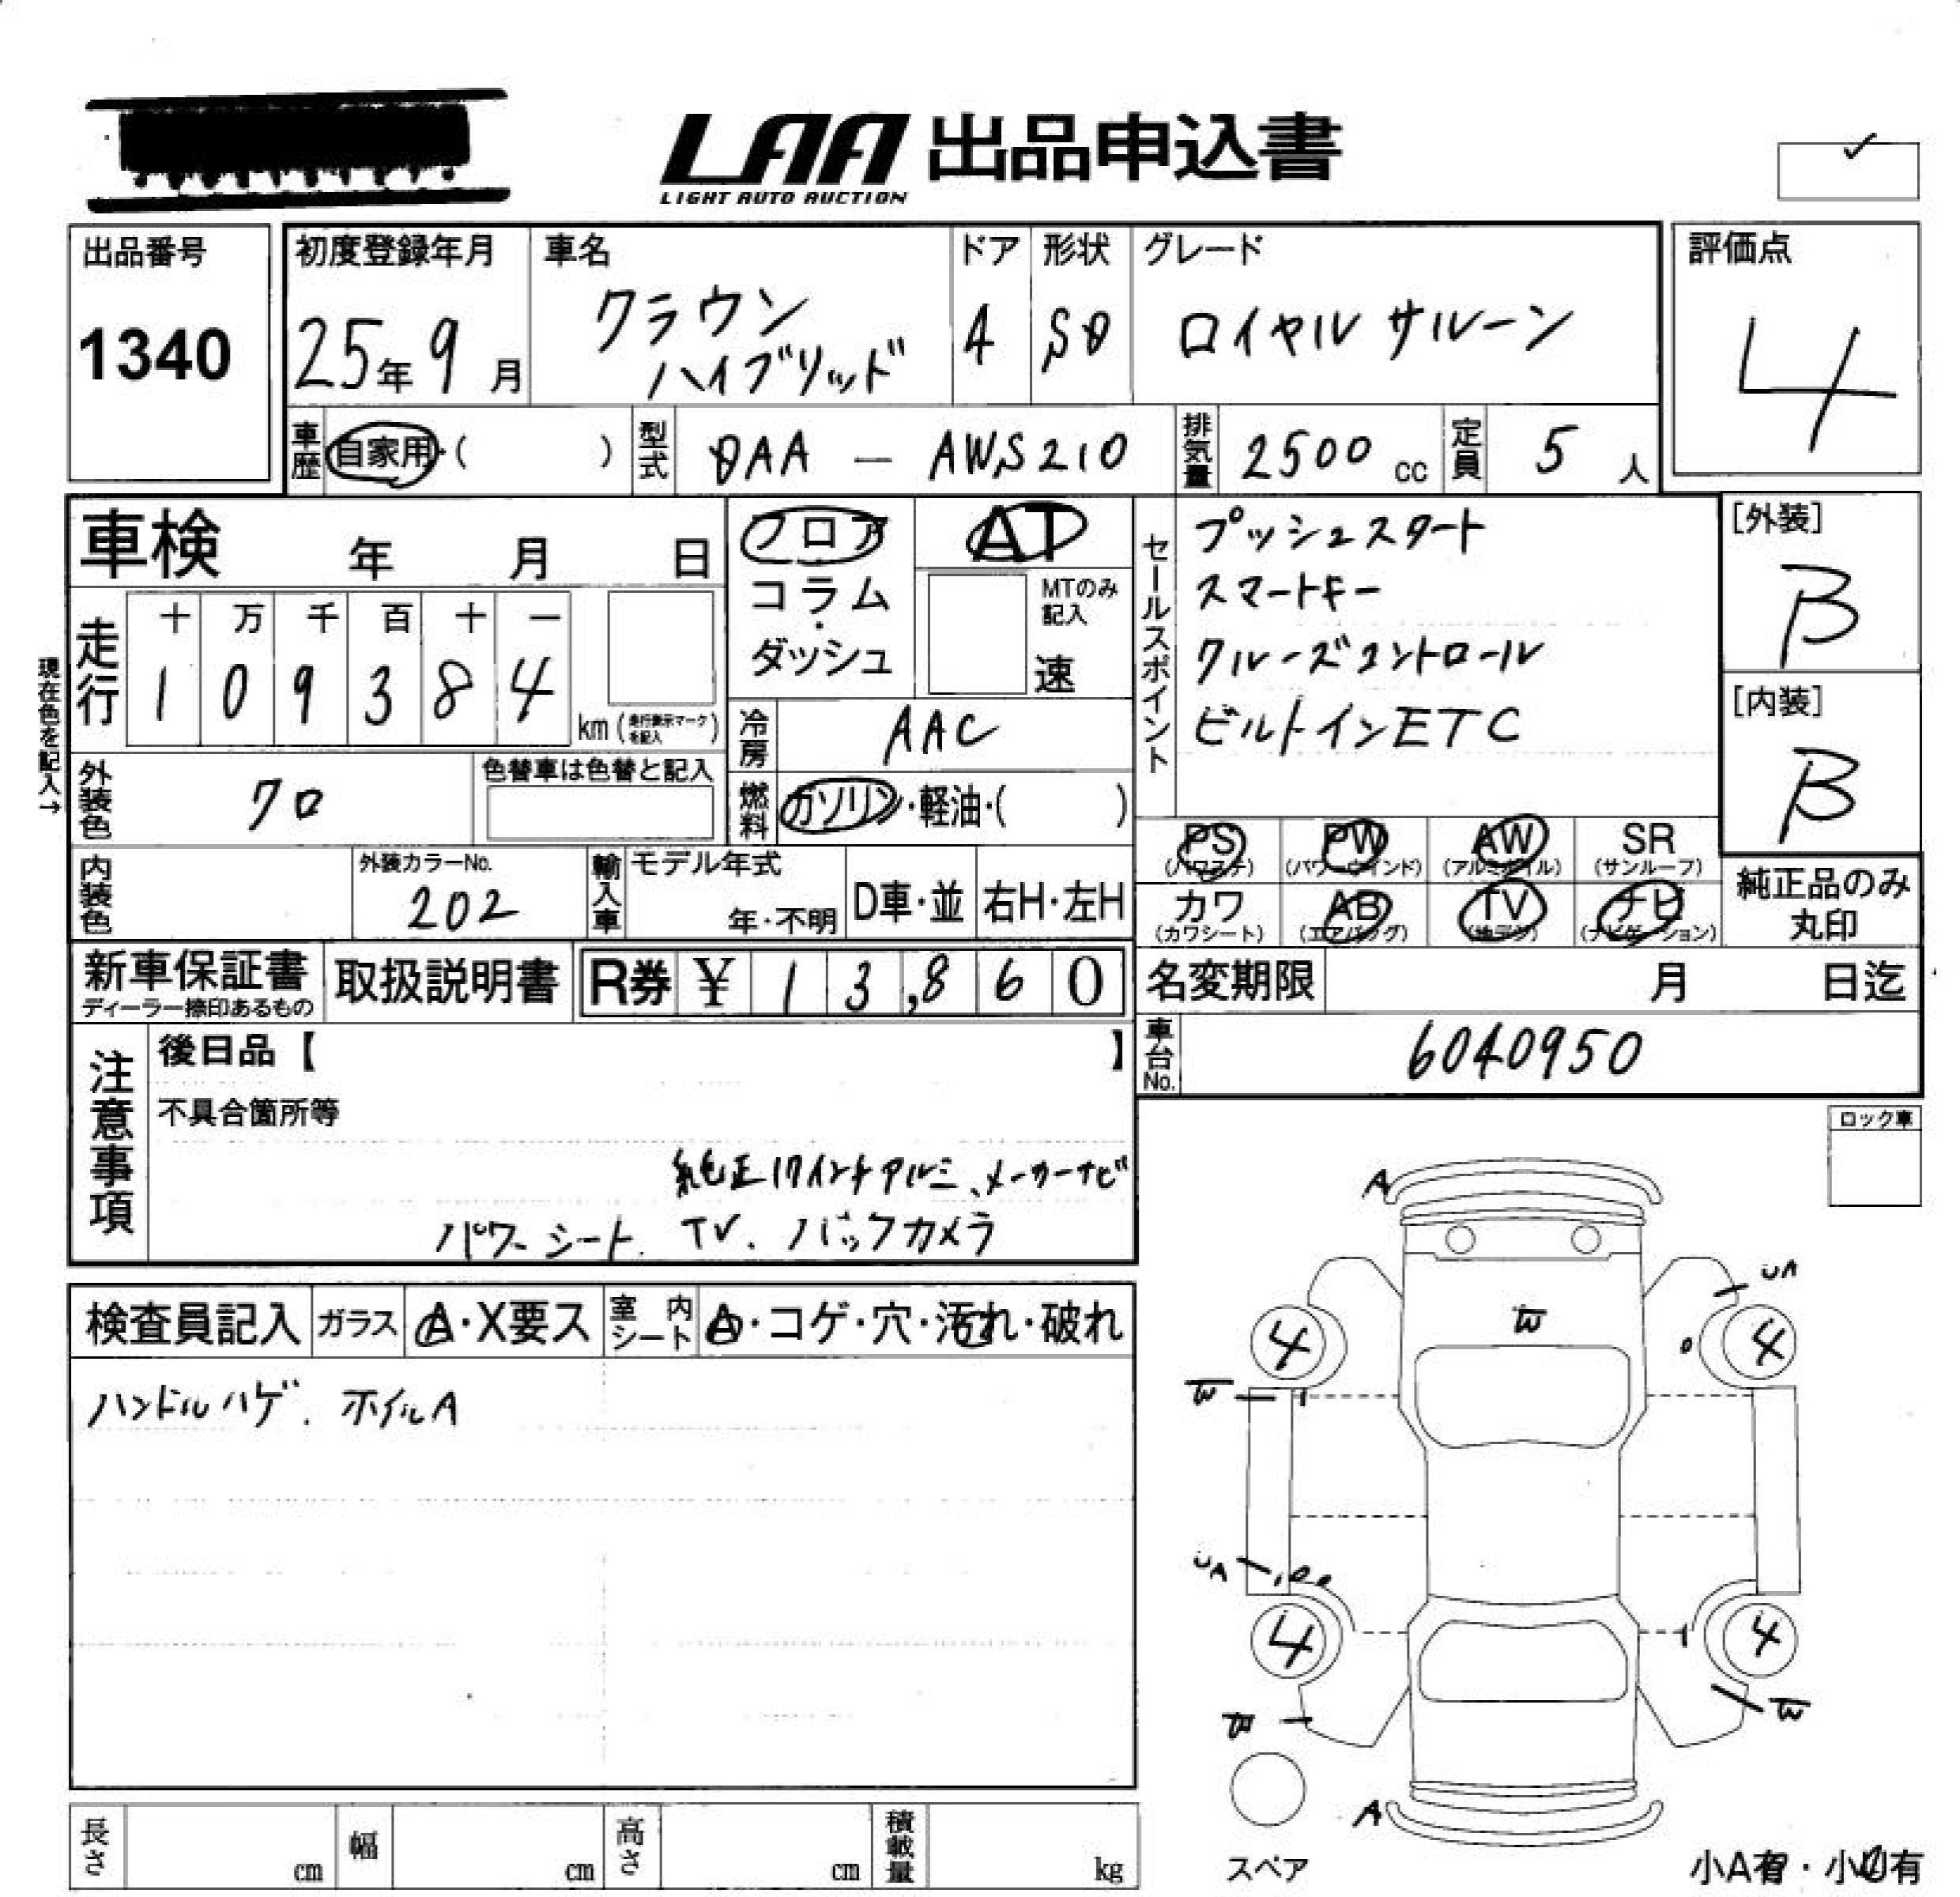 LAA 出品申込書
LIGHT AUTO AUCTION
出品番号
1340
初度登録年月
25年9月
車名
クラウン
ハイブリッド
ドア
4
形状
SD
グレード
ロイヤル サルーン
評価点
4
車歴
自家用・( )
型式
DAA — AWS210
排気量
2500 cc
定員
5 人
車検 年 月 日
フロア
コラム
・
ダッシュ
AT
MTのみ
記入
速
セールスポイント
プッシュスタート
スマートキー
クルーズコントロール
ビルトインETC
[外装]
B
[内装]
B
現在色を記入→
走行
十 万 千 百 十 一
1 0 9 3 8 4
km (走行表示マークを記入)
冷房
AAC
外装色
クロ
色替車は色替と記入
燃料
ガソリン・軽油・( )
PS
(パワステ)
PW
(パワーウインド)
AW
(アルミホイル)
SR
(サンルーフ)
カワ
(カワシート)
AB
(エアバッグ)
TV
(地デジ)
ナビ
(ナビゲーション)
純正品のみ
丸印
内装色
外装カラーNo.
202
輸入車
モデル年式
年・不明
D車・並
右H・左H
新車保証書
ディーラー捺印あるもの
取扱説明書
R券 ¥ 1 3,8 6 0
名変期限 月 日迄
車台No.
6040950
注意事項
後日品【 】
不具合箇所等
純正17インチアルミ、メーカーナビ
パワーシート. TV. バックカメラ
ロック車
検査員記入
ガラス
A・X要ス
室内シート
A・コゲ・穴・汚れ・破れ
ハンドルハゲ. ホイルA
A
UA
W
4
4
W
UA
4
4
W
W
A
スペア
小A有・小U有
長さ cm
幅 cm
高さ cm
積載量 kg